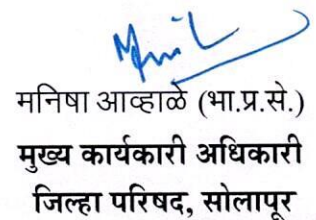 मनिषा आव्हाळे (भा.प्र.से.)
मुख्य कार्यकारी अधिकारी
जिल्हा परिषद, सोलापूर